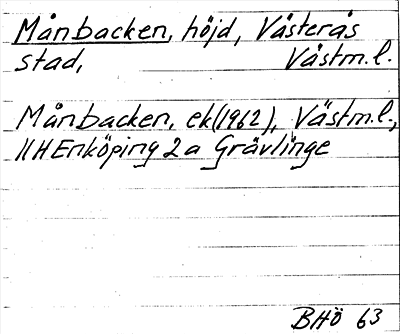 Månbacken, höjd, Västerås
stad, Västm.l.
Månbacken, ek(1962), Västm.l.,
11H Enköping 2a Grävlinge
BHÖ 63